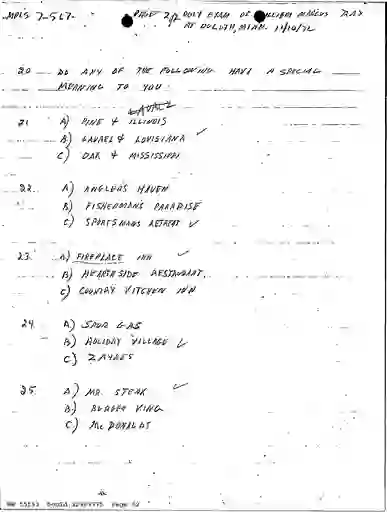 MPLS 7-567-
PAGE 2 POLY EXAM OF WILLIAM MARCUS
AT DULUTH, MINN. 11/10/72
20 DO ANY OF THE FOLLOWING HAVE A SPECIAL
MEANING TO YOU:
LAUREL
21 A) PINE & ILLINOIS
B) LAUREL & LOUISIANA ✓
C) OAK & MISSISSIPPI
22. A) ANGLERS HAVEN
B) FISHERMANS PARADISE
C) SPORTSMANS RETREAT ✓
23. A) FIREPLACE INN ✓
B) HEARTHSIDE RESTAURANT
C) COUNTRY KITCHEN INN
24. A) SPUR GAS
B) HOLIDAY VILLAGE ✓
C) ZAYRES
25. A) MR. STEAK ✓
B) BURGER KING
C) McDONALDS
Page 62